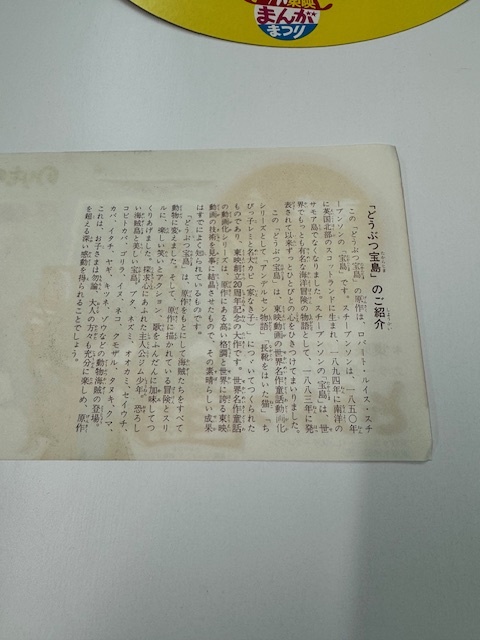 東映
まんが
まつり
「どうぶつ宝島」のご紹介
この「どうぶつ宝島」の原作は、ロバート・ルイス・スチ
ーブンソンの「宝島」です。スチーブンソンは、一八五〇年
に英国北部のスコットランドに生まれ、一八九四年に南洋の
サモア島でなくなりました。スチーブンソンの「宝島」は、世
界でもっとも有名な海洋冒険の物語として、一八八三年に発
表されて以来ずっとひとびとの心をひきつけてまいりました。
この「どうぶつ宝島」は、東映動画の世界名作童話動画化
シリーズとして「アンデルセン物語」「長靴をはいた猫」「ち
びっ子レミと名犬カピ(家なき子)」についでつくられた
ものであり、東映創立20周年記念の大作です。世界名作童話
の動画化シリーズは、原作にある高い格調と世界に誇る東映
動画の技術を見事に結晶させたもので、その素晴らしい成果
はすでによく知られているものです。
「どうぶつ宝島」は、原作をもとにして海賊たちをすべて
動物に変えました。そして、原作に描かれている冒険とスリ
ルに、楽しい笑いとアクション、歌をふんだんに加味してつ
くりあげました。探求心にあふれた主人公ジム少年、恐ろし
い海賊島と美しい宝島、ブタ、ネズミ、オオカミ、セイウチ、
コビトカバ、ゴリラ、イヌ、ネコ、テモザル、タヌキ、クマ、
カバ、イタチ、ヤギ、キツネ、ゾウなどの動物海賊の登場。
これは、お子さまは勿論、大人の方々も充分に楽しめ、原作
を超える深い感動を得られることでしょう。